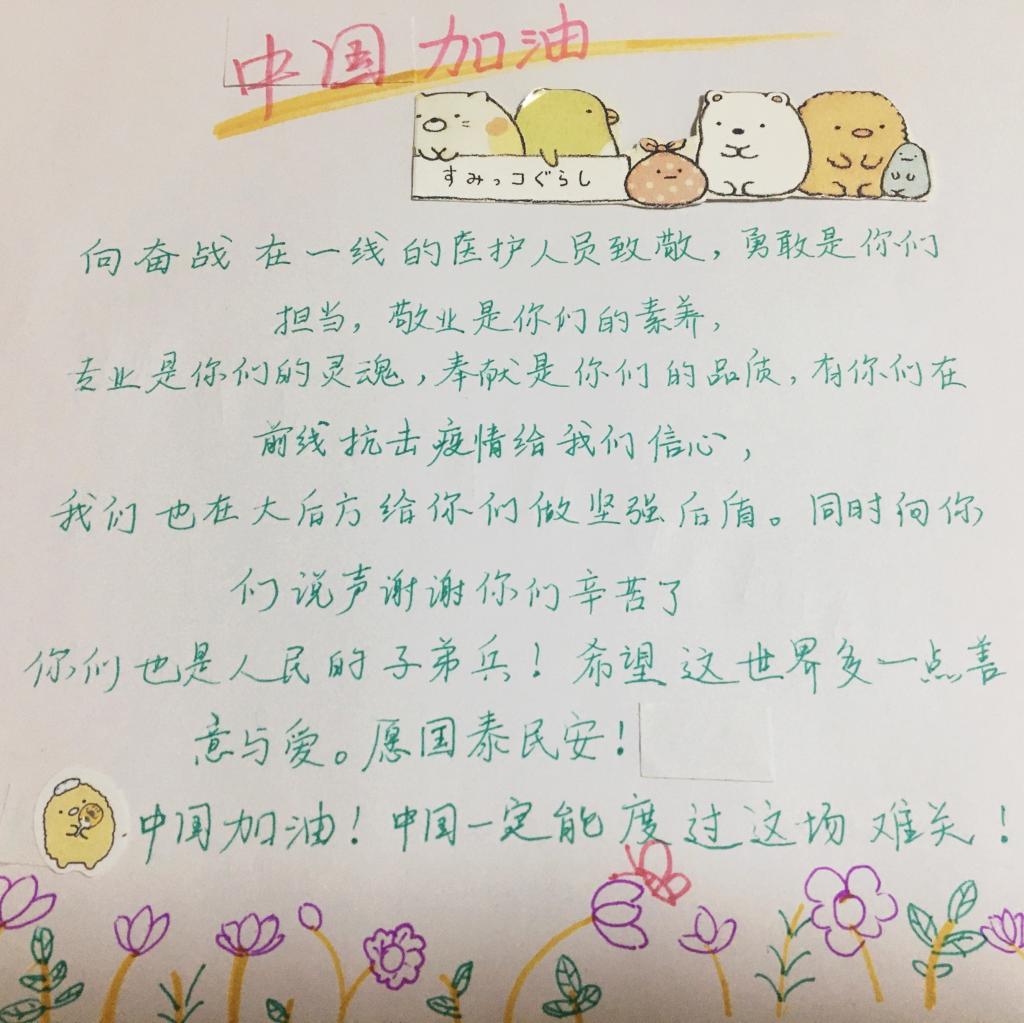 中国加油
すみっコぐらし
向奋战在一线的医护人员致敬，勇敢是你们
担当，敬业是你们的素养，
专业是你们的灵魂，奉献是你们的品质，有你们在
前线抗击疫情给我们信心，
我们也在大后方给你们做坚强后盾。同时向你
们说声谢谢你们辛苦了
你们也是人民的子弟兵！希望这世界多一点善
意与爱。愿国泰民安！
中国加油！中国一定能度过这场难关！